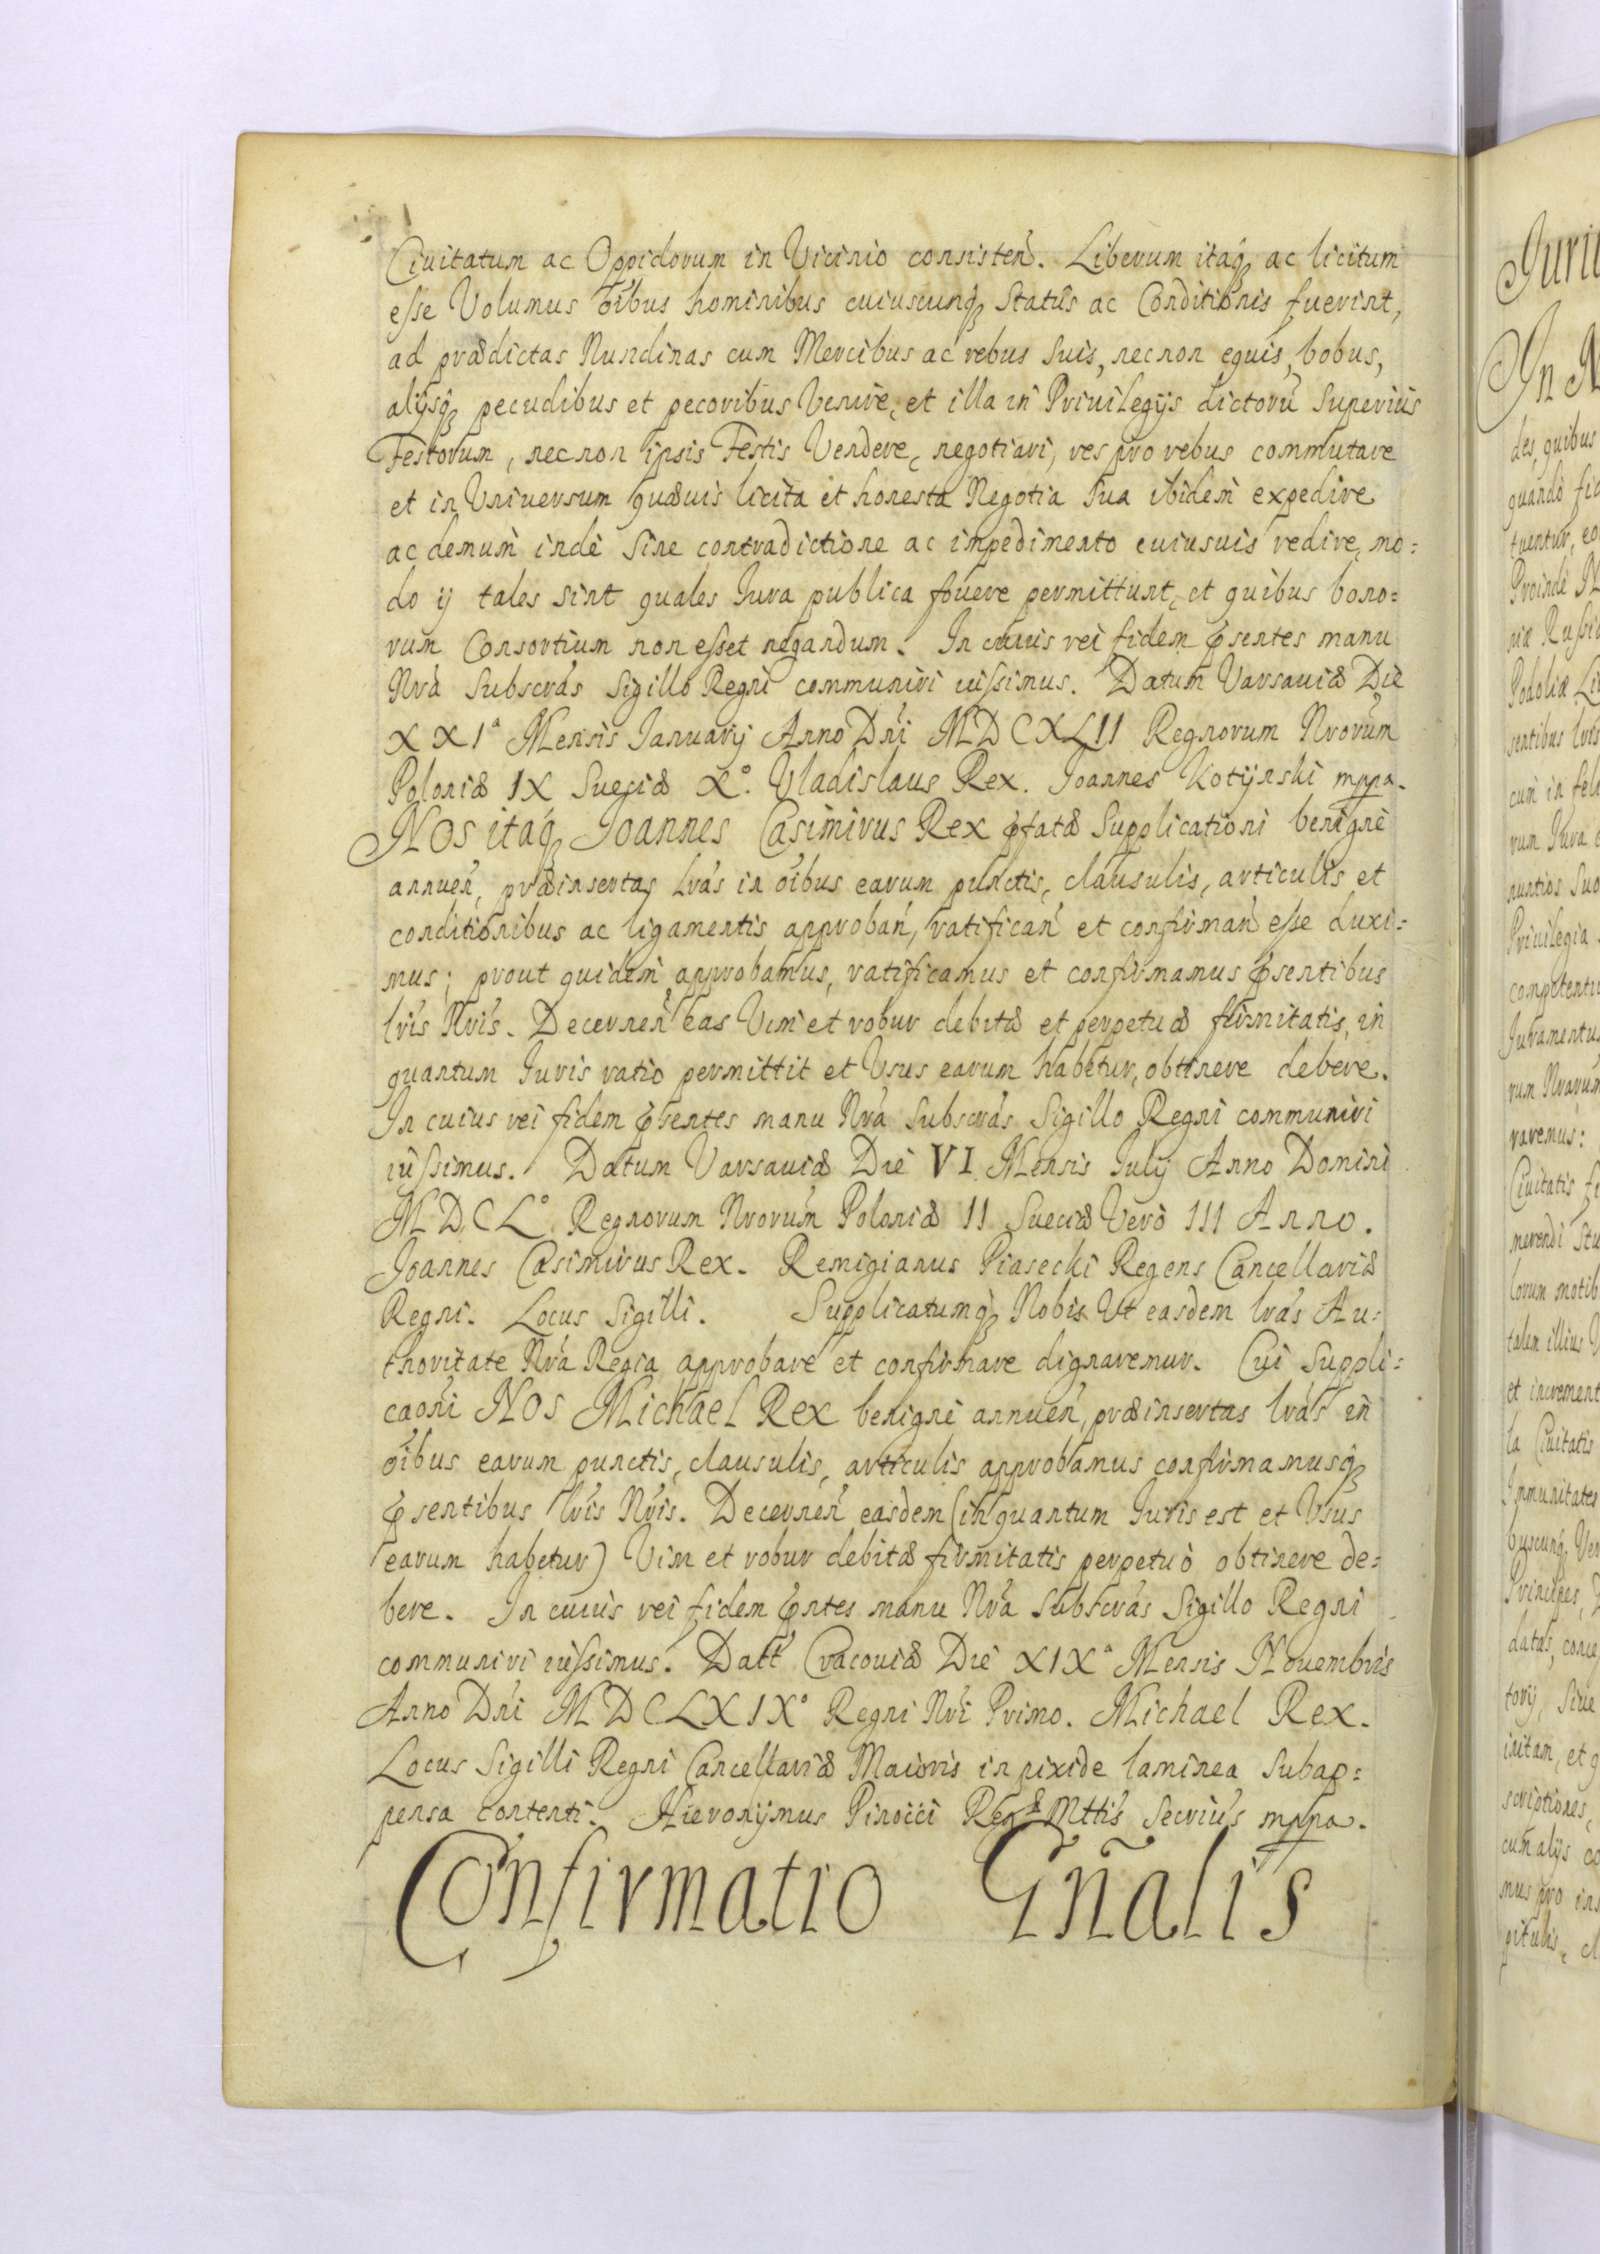 Ciuitatum ac Oppidorum in Vicinio consisteñ. Liberum itaq̃ ac licitum
esse Volumus oĩbus hominibus cuiuscunq̃ Statûs ac Conditionis fuerint,
ad prædictas Nundinas cum Mercibus ac rebus suis, necnon equis, bobus,
alÿsq̃ pecudibus et pecoribus Venire, et illa in Priuilegijs dictorũ superiùs
Festorum, necnon ipsis Festis Vendere, negotiari, res pro rebus commutare
et in Vniuersum quæuis licita et honesta Negotia sua ibidem expedire
ac demum inde sine contradictione ac impedimento cuiusuis redire, mo=
do ÿ tales sint quales Iura publica fouere permittunt, et quibus bono=
rum Consortium non esset negandum. In cuius rei fidem p̃sentes manu
Nrã Subscrãs Sigillo Regni communiri iussimus. Datum Varsauiæ Die
XXIª Mensis Ianuarÿ Anno Dñi MDCXLII Regnorum Nrorũm
Poloniæ IX Sueciæ X°. Vladislaus Rex. Joannes Kotÿnski mppa.
NOS itaq̃ Joannes Casimirus Rex p̃fatæ Supplicationi benignè
annueñ, præinsertas lrãs in oĩbus earum punctis, clausulis, articulis et
conditionibus ac ligamentis approbañ, ratificañ et confirmañ esse duxi=
mus; prout quidem approbamus, ratificamus et confirmamus p̃sentibus
lrĩs Nrĩs. Decerneñ eas Vim et robur debitæ et perpetuæ firmitatis, in
quantum Iuris ratio permittit et Vsus earum habetur, obtinere debere.
In cuius rei fidem p̃sentes manu Nrã subscrãs Sigillo Regni communiri
iussimus. Datum Varsauiæ Die VI Mensis Iulÿ Anno Domini
MDCL° Regnorum Nrorũm Poloniæ II Sueciæ Verò III Anno.
Joannes Casimirus Rex. Remigianus Piasecki Regens Cancellariæ
Regni. Locus Sigilli. Supplicatumq̃ Nobis Vt easdem lrãs Au=
thoritate Nrã Regia approbare et confirmare dignaremur. Cui Suppli=
caõni NOS Michael Rex benigni annueñ, præinsertas lrãs in
oĩbus earum punctis, clausulis, articulis approbamus confirmamusq̃
p̃sentibus lrĩs Nrĩs. Decerneñ easdem (inquantum Iuris est et Vsus
earum habetur) Vim et robur debitæ firmitatis perpetuò obtinere de=
bere. In cuius rei fidem p̃ntes manu Nrã Subscrãs Sigillo Regni
communiri iussimus. Datt Cracouiæ Die XIXª Mensis Nouembris
Anno Dñi MDCLXIX° Regni Nrĩ Primo. Michael Rex.
Locus Sigilli Regni Cancellariæ Maioris in pixide laminea subap=
pensa contenti. Hieronÿmus Pinocci Regæ Mttis Secrius mppa.
Confirmatio Gñalis